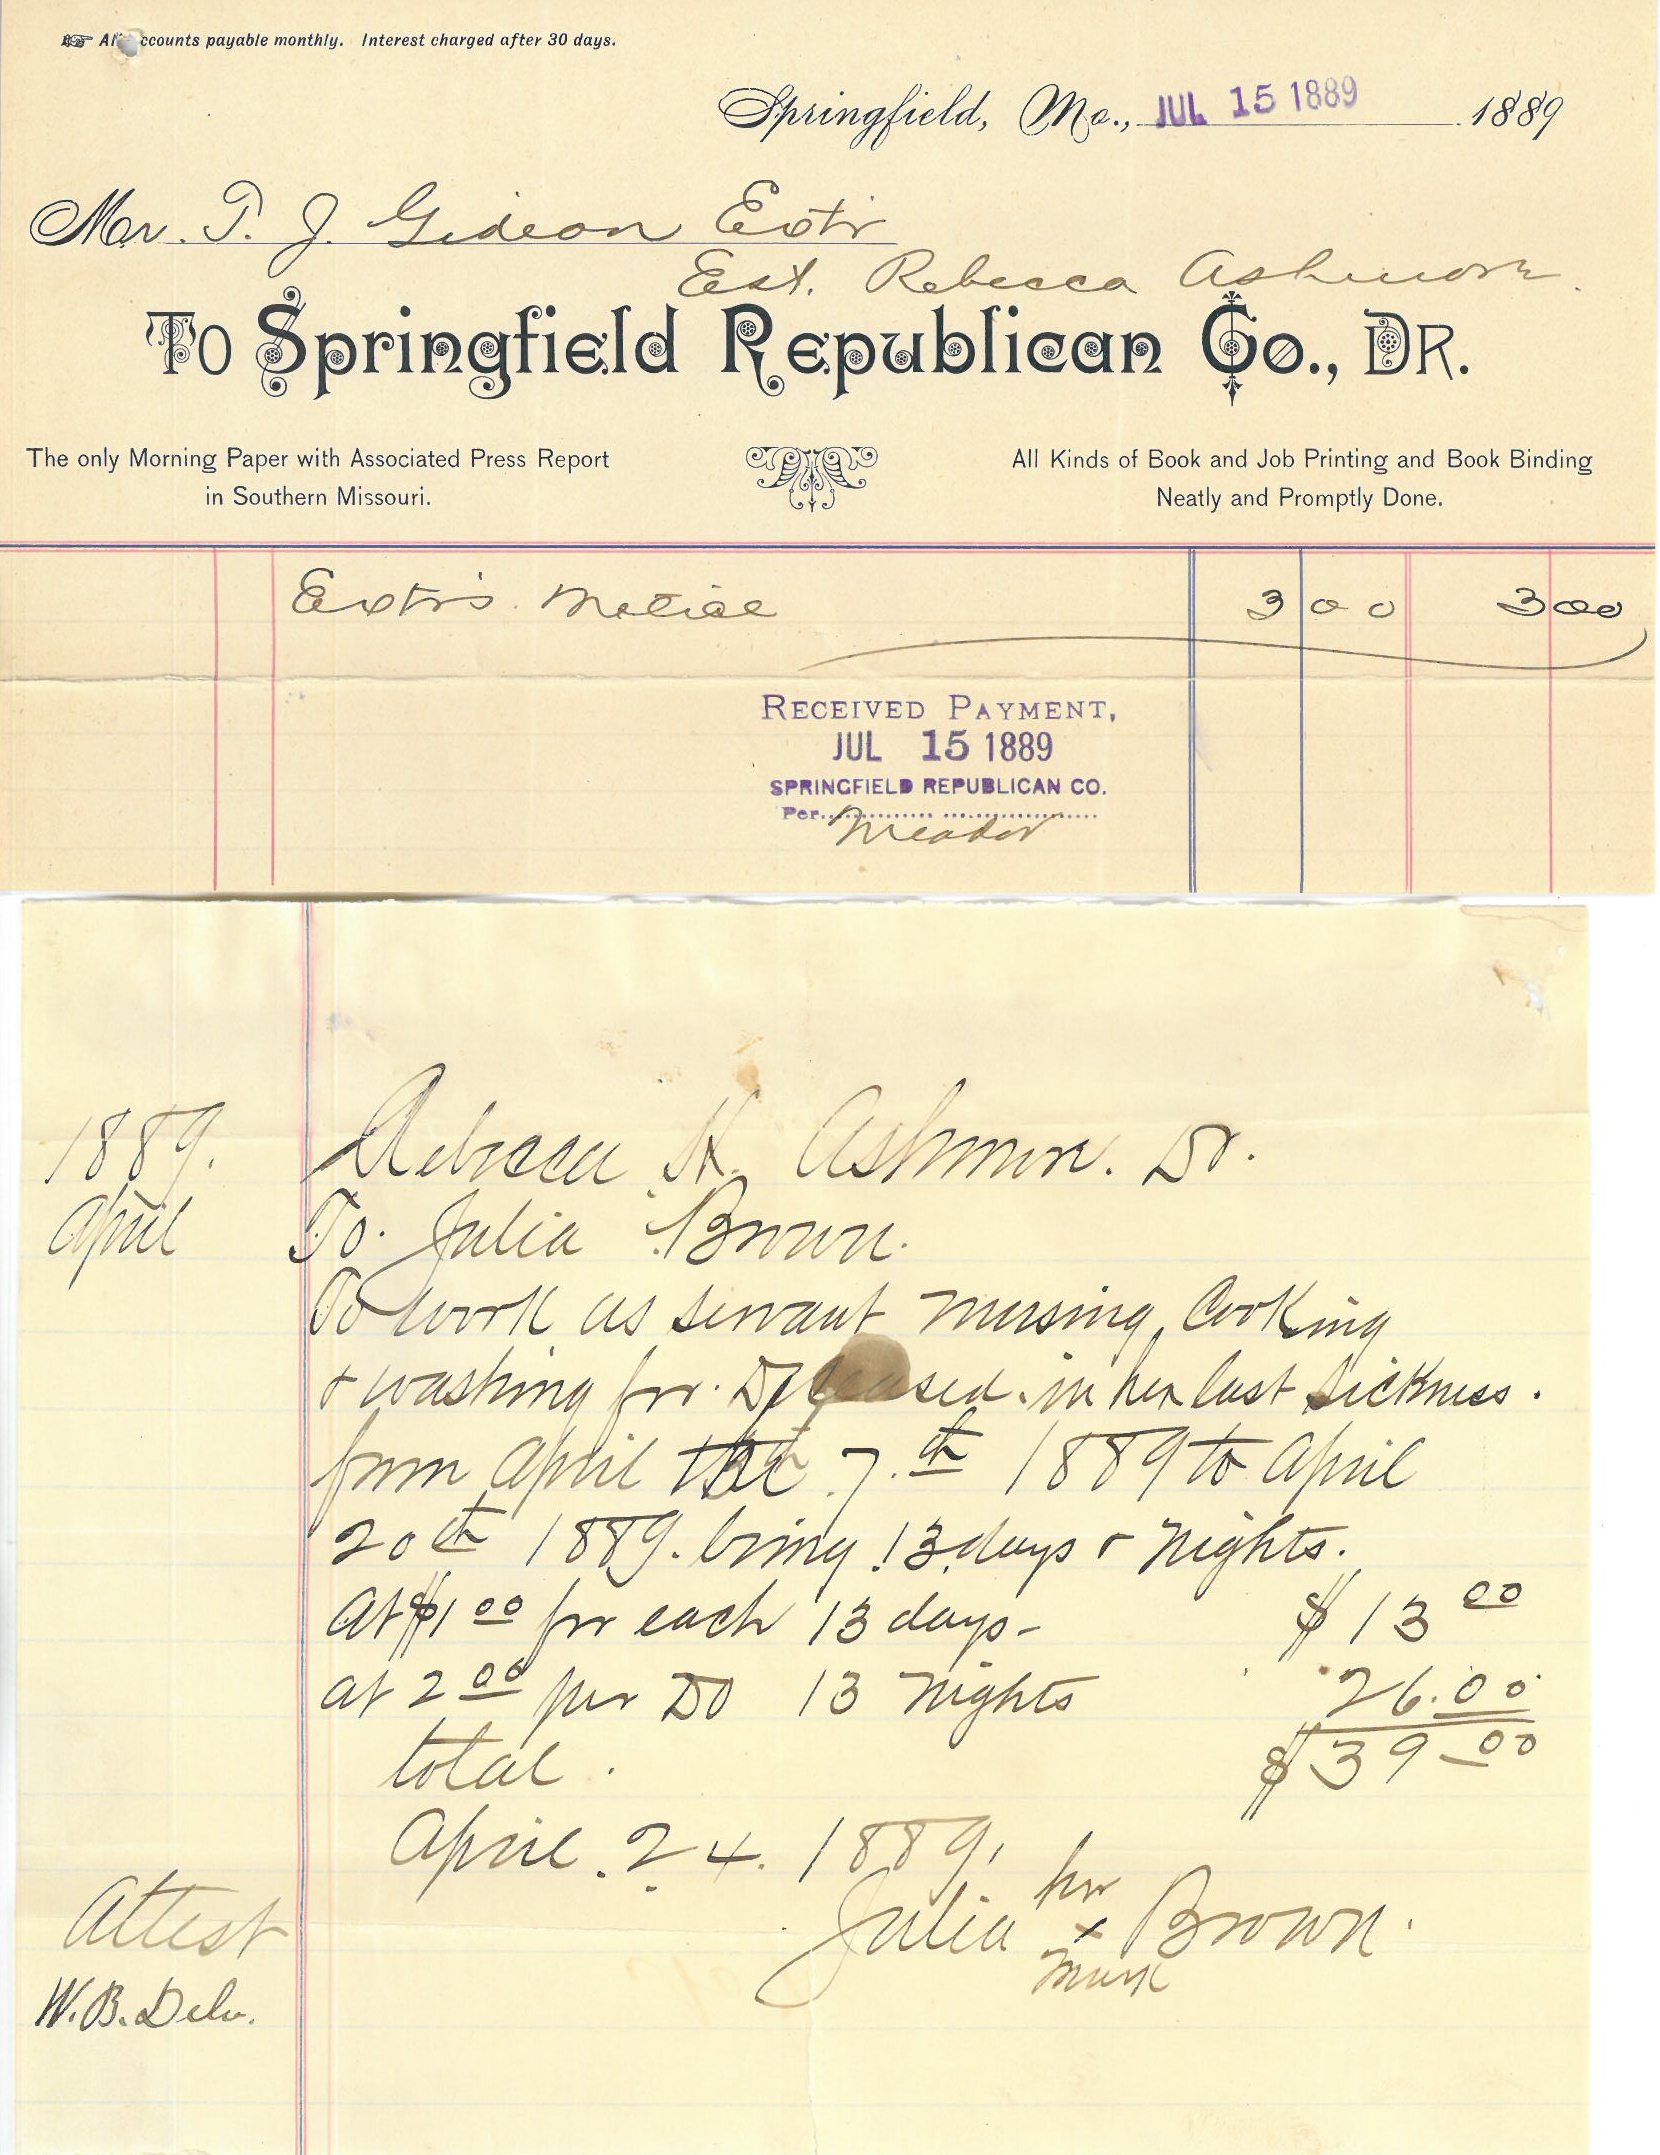 All accounts payable monthly. Interest charged after 30 days.
Springfield, Mo., JUL 15 1889 1889
Mr. T. J. Gideon Extr
Est. Rebecca Ashmore.
To Springfield Republican Co., Dr.
The only Morning Paper with Associated Press Report
in Southern Missouri.
All Kinds of Book and Job Printing and Book Binding
Neatly and Promptly Done.
Extr's Notice 3 00 3 00
RECEIVED PAYMENT,
JUL 15 1889
SPRINGFIELD REPUBLICAN CO.
Per Meador
1889. Rebecca H. Ashmore. Dr.
April To. Julia Brown.
To work as servant nursing, Cooking
& washing for Deceased. in her last sickness.
from April the 7.th 1889 to April
20th 1889. being 13 days & Nights.
At $1 00 for each 13 days- $13 00
at 2 00 per Do 13 Nights 26.00
total. $39 00
April. 24. 1889.
her
Attest Julia x Brown.
mark
W. B.